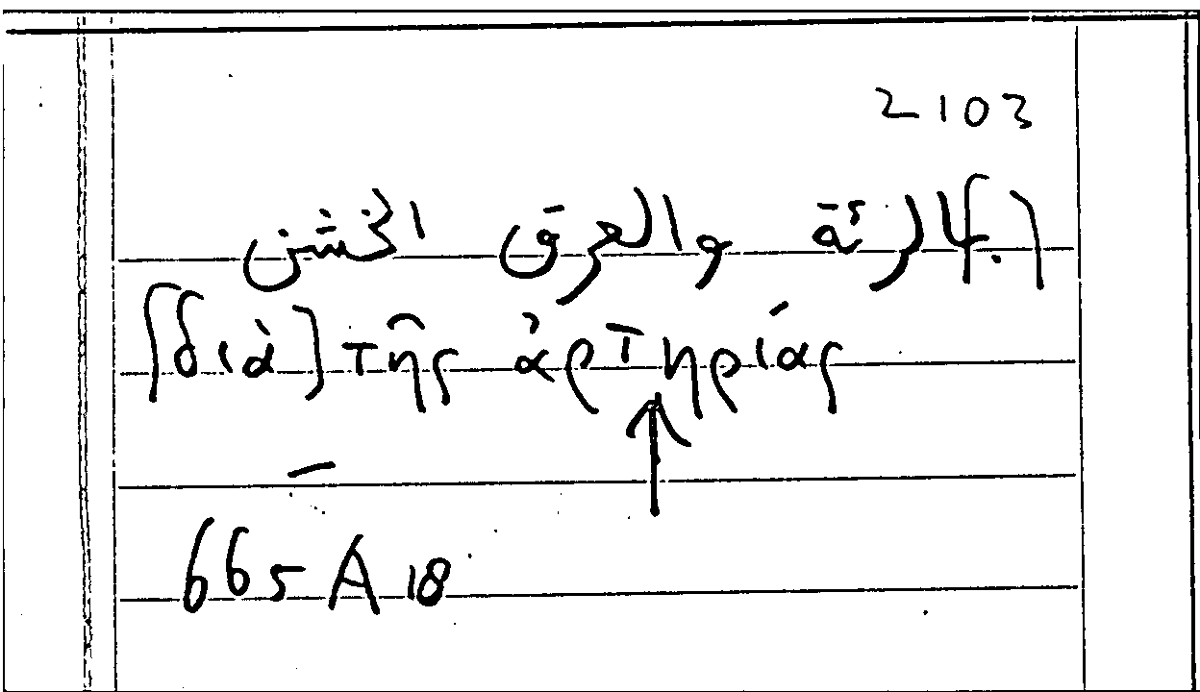 2103
[ب]الرئة والعرق الخشن
[διὰ] τῆς ἀρτηρίας
↑
665 A 18